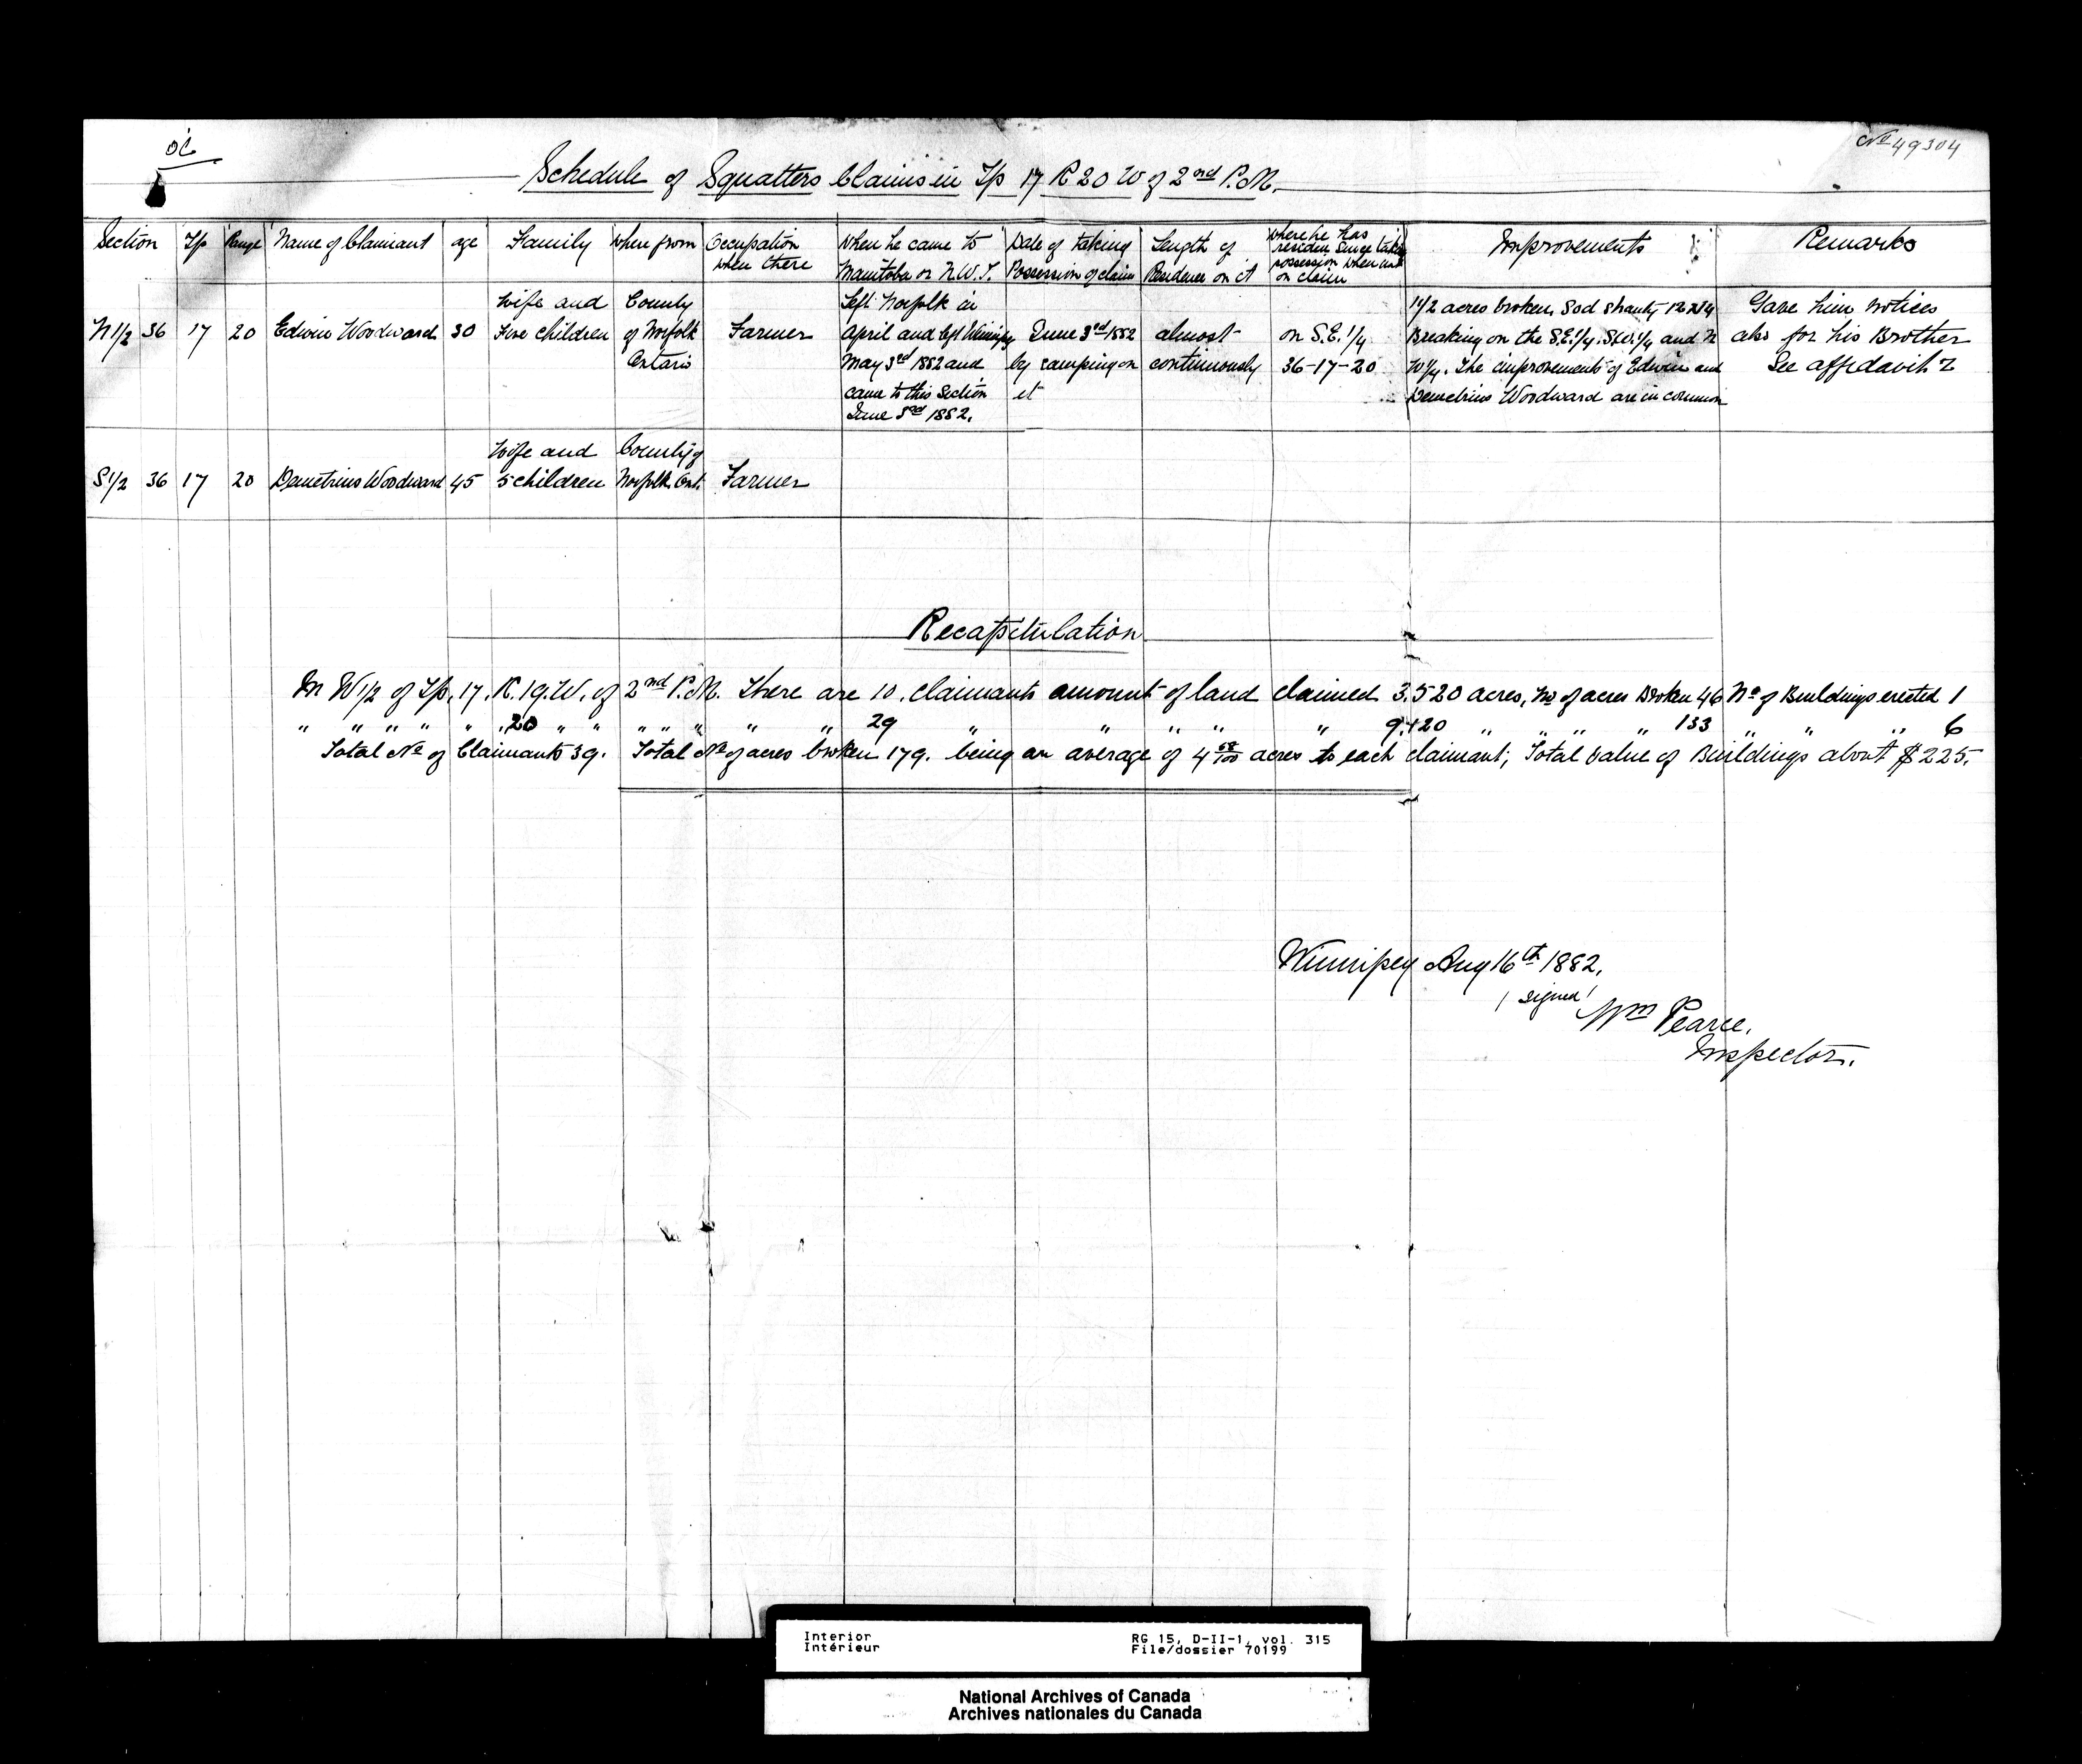 OC
No 49304
Schedule of Squatters Claims in Tp 17 R 20 W of 2nd P.M.
Section Tp Range Name of Claimant age Family where from Occupation when there When he came to Manitoba or N.W.T. Date of taking Possession of claim Length of Residence on it where he has resided since taking possession when not on claim Improvements Remarks
N 1/2 36 17 20 Edwin Woodward 30 Wife and Five children County of Norfolk Ontario Farmer Left Norfolk in April and left Winnipeg May 3rd 1882 and came to this Section June 3rd 1882. June 3rd 1882 by camping on it almost continuously on S.E. 1/4 36-17-20 11/2 acres broken, Sod shanty 12 x 14 Breaking on the S.E. 1/4. S.W. 1/4 and N W 1/4. The improvements of Edwin and Demetrius Woodward are in common Gave him notices also for his Brother See affidavit Z
S 1/2 36 17 20 Demetrius Woodward 45 Wife and 5 children County of Norfolk Ont. Farmer
Recapitulation
In W 1/2 of Tp. 17. R. 19. W. of 2nd P.M. There are 10. claimants amount of land claimed 3.520 acres, No of acres Broken 46 No of Buildings erected 1
" " " " " " 20 " " " " " " " 29 " " " " " 9.120 " " " 133 " " " 6
Total No of Claimants 39. Total No of acres broken 179. being an average of 4 58/100 acres to each claimant; Total value of Buildings about $225.
Winnipeg Aug 16th 1882.
(signed)
Wm Pearce.
Inspector.
Interior RG 15, D-II-1, vol. 315
Intérieur File/dossier 70199
National Archives of Canada
Archives nationales du Canada